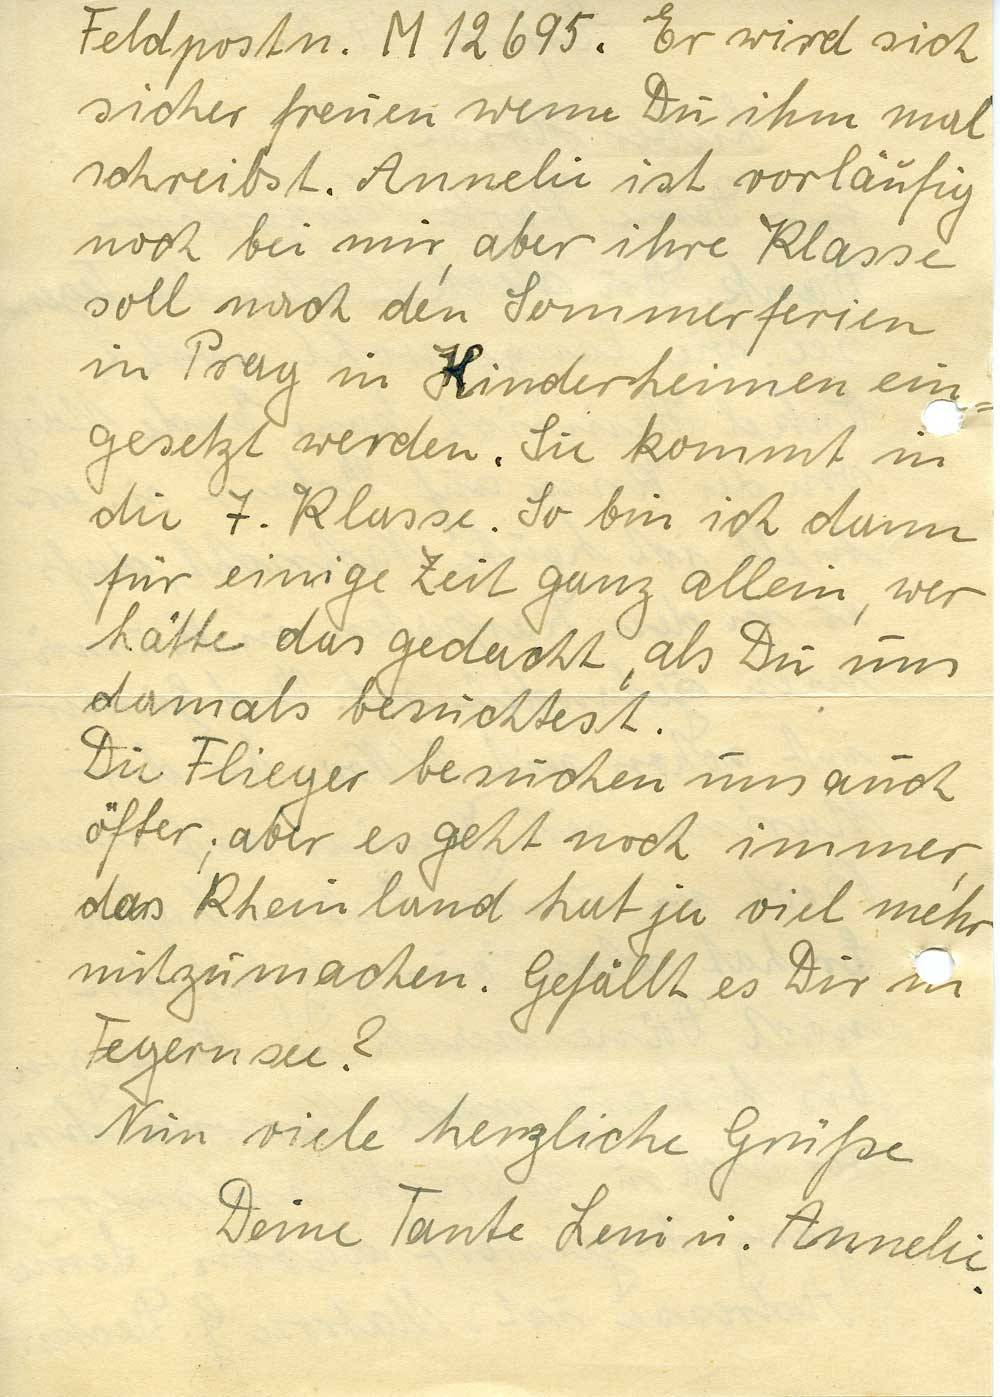 Feldpostn. M 12695. Er wird sich
sicher freuen wenn Du ihm mal
schreibst. Annelie ist vorläufig
noch bei mir, aber ihre Klasse
soll nach den Sommerferien
in Prag in Kinderheimen ein=
gesetzt werden. Sie kommt in
die 7. Klasse. So bin ich dann
für einige Zeit ganz allein, wer
hätte das gedacht, als Du uns
damals besuchtest.
Die Flieger besuchen uns auch
öfter, aber es geht noch immer,
das Rheinland hat ja viel mehr
mitzumachen. Gefällt es Dir in
Tegernsee?
Nun viele herzliche Grüße
Deine Tante Leni u. Annelie.